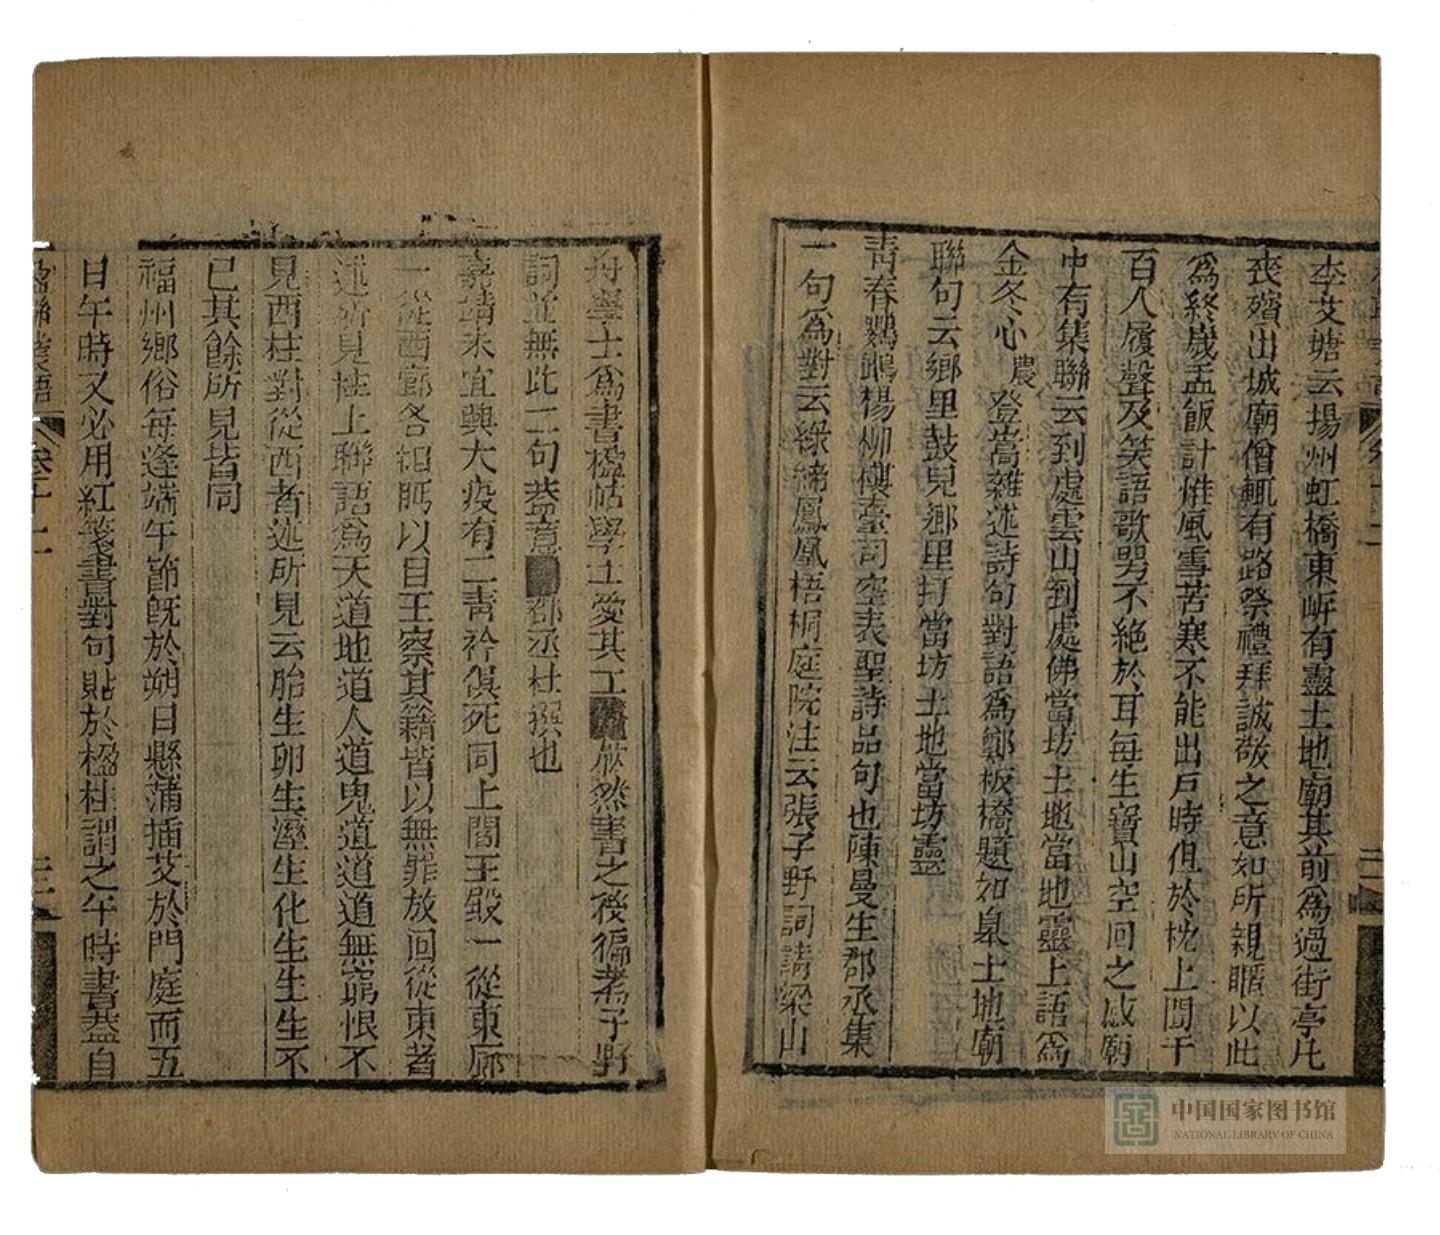 李艾塘云揚州虹橋東岸有靈土地廟其前為過街亭凡
喪殯出城廟僧輒有路祭禮拜誠敬之意如所親暱以此
為終歲盂飯計惟風雪苦寒不能出戶時但於枕上聞千
百人履聲及笑語歌哭不絕於耳每生寶山空回之感廟
中有集聯云到處雲山到處佛當坊土地當地靈上語為
金冬心農登嵩雜述詩句對語為鄭板橋題如臯土地廟
聯句云鄉里鼓兒鄉里打當坊土地當坊靈
青春鸚鵡楊柳樓臺司空表聖詩品句也陳曼生郡丞集
一句為對云綠綺鳳凰梧桐庭院注云張子野詞請梁山
舟學士為書楹帖學士愛其工欣然書之後徧考子野
詞並無此二句葢意郡丞杜撰也
嘉靖末宜興大疫有二青衿俱死同上閻王殿一從東廊
一從西廊各相眄以目王察其籍皆以無罪放回從東者
述所見柱上聯語為天道地道人道鬼道道道無窮恨不
見西柱對從西者述所見云胎生卵生溼生化生生生不
已其餘所見皆同
福州鄉俗每逢端午節旣於朔日懸蒲插艾於門庭而五
日午時又必用紅箋書對句貼於楹柱謂之午時書葢自
中国国家图书馆
NATIONAL LIBRARY OF CHINA